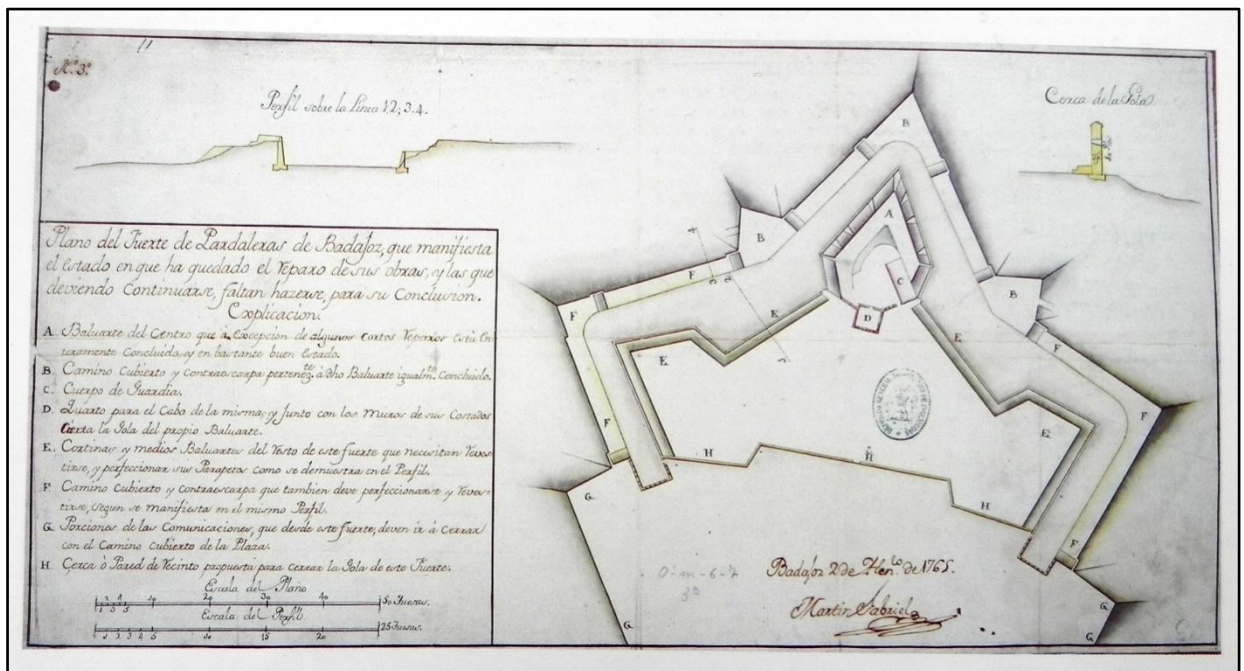 11
N.º 3.º
Perfil sobre la Linea 1,2; 3.4.
Cerca de la Gola
Plano del Fuerte de Pardaleras de Badajoz, que manifiesta
el estado en que ha quedado el reparo de sus obras, y las que
deviendo Continuarse, faltan hazerse, para su Conclusion.
Explicacion.
A. Baluarte del Centro que à excepcion de algunos cortos reparos està En
teramente Concluido, y en bastante buen estado.
B. Camino Cubierto y Contraescarpa pertenez.te à dho Baluarte igualm.te Concluido.
C. Cuerpo de Guardia.
D. Quarto para el Cabo de la misma; y junto con los Muros de sus Costados
cierra la Gola del propio Baluarte.
E. Cortinas y medios Baluartes del resto de este fuerte que necesitan reves
tirse, y perfeccionar sus Parapetos como se demuestra en el Perfil.
F. Camino Cubierto y contraescarpa que tambien deve perfeccionarse y reves
tirse, segun se manifiesta en el mismo Perfil.
G. Porciones de las Comunicaciones, que desde este fuerte, deven ir à cerrar
con el Camino Cubierto de la Plaza.
H. Cerca ò Pared de recinto propuesta para cerrar la Gola de este Fuerte.
Escala del Plano
10 20 30 40 50 Tuesas.
Escala del Perfil
1 2 3 4 5 10 15 20 25 Tuesas.
B
B
A
F
C
B
F
D
E
E
F
E
E
F
H
H
H
G
F
G
G
O-m-6-7
3ª
Badajoz 2 de Hen.ro de 1765.
Martin Gabriel